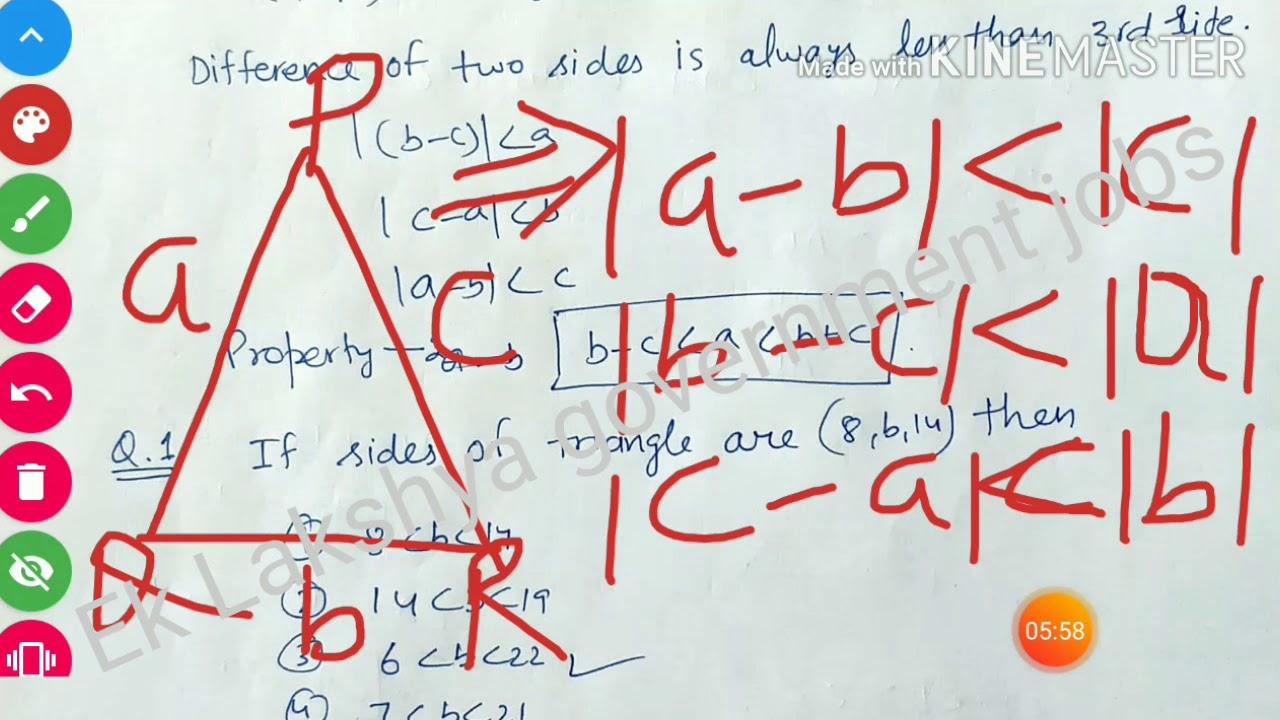 Difference of two sides is always less than 3rd side.
Made with KINEMASTER
|(b-c)|<a
|c-a|<b
|a-b|<c
Property - b-c<a<b+c.
Q.1 If sides of triangle are (8,b,14) then
① 8<b<14
② 14<b<19
③ 6<b<22 ✓
④ 7<b<21
P
a
c
Q
b
R
⇒ |a-b|<|c|
|b-c|<|a|
|c-a|<|b|
Ek Lakshya government jobs
05:58